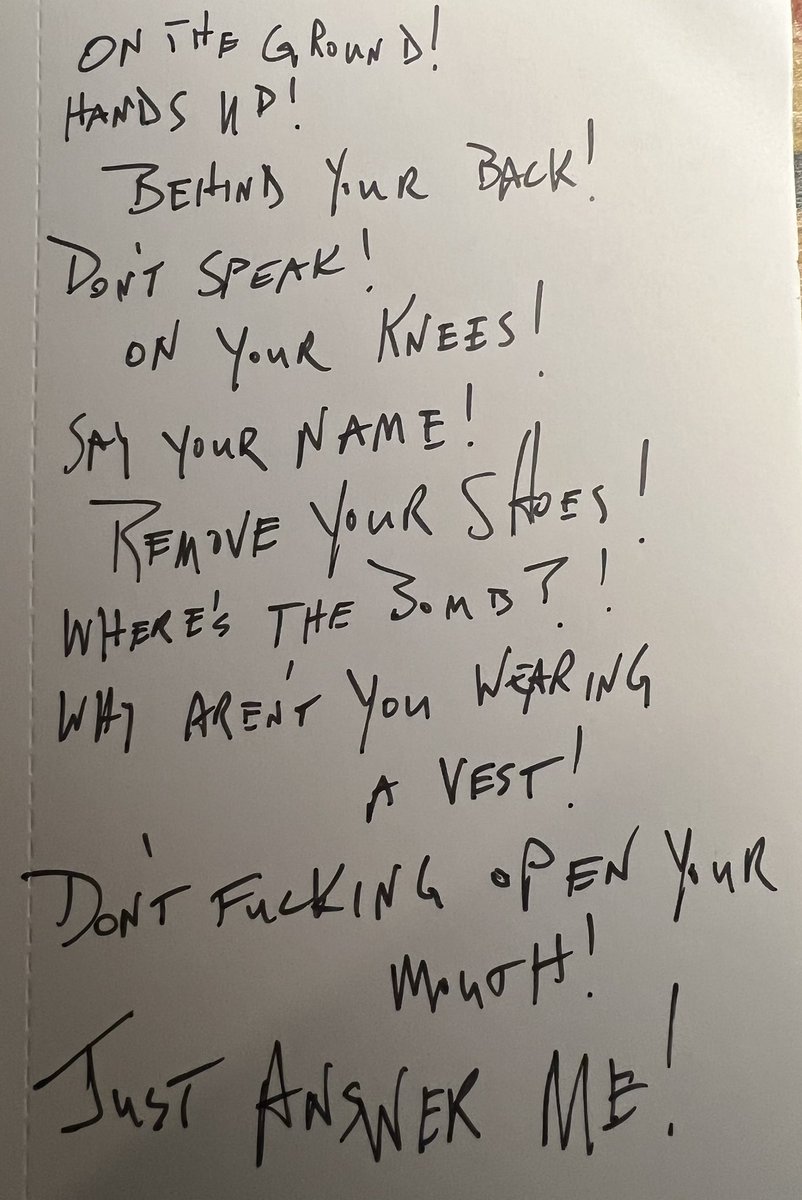 ON THE GROUND!
HANDS UP!
BEHIND YOUR BACK!
DON'T SPEAK!
ON YOUR KNEES!
SAY YOUR NAME!
REMOVE YOUR SHOES!
WHERE'S THE BOMB?!
WHY AREN'T YOU WEARING
A VEST!
DON'T FUCKING OPEN YOUR
MOUTH!
JUST ANSWER ME!